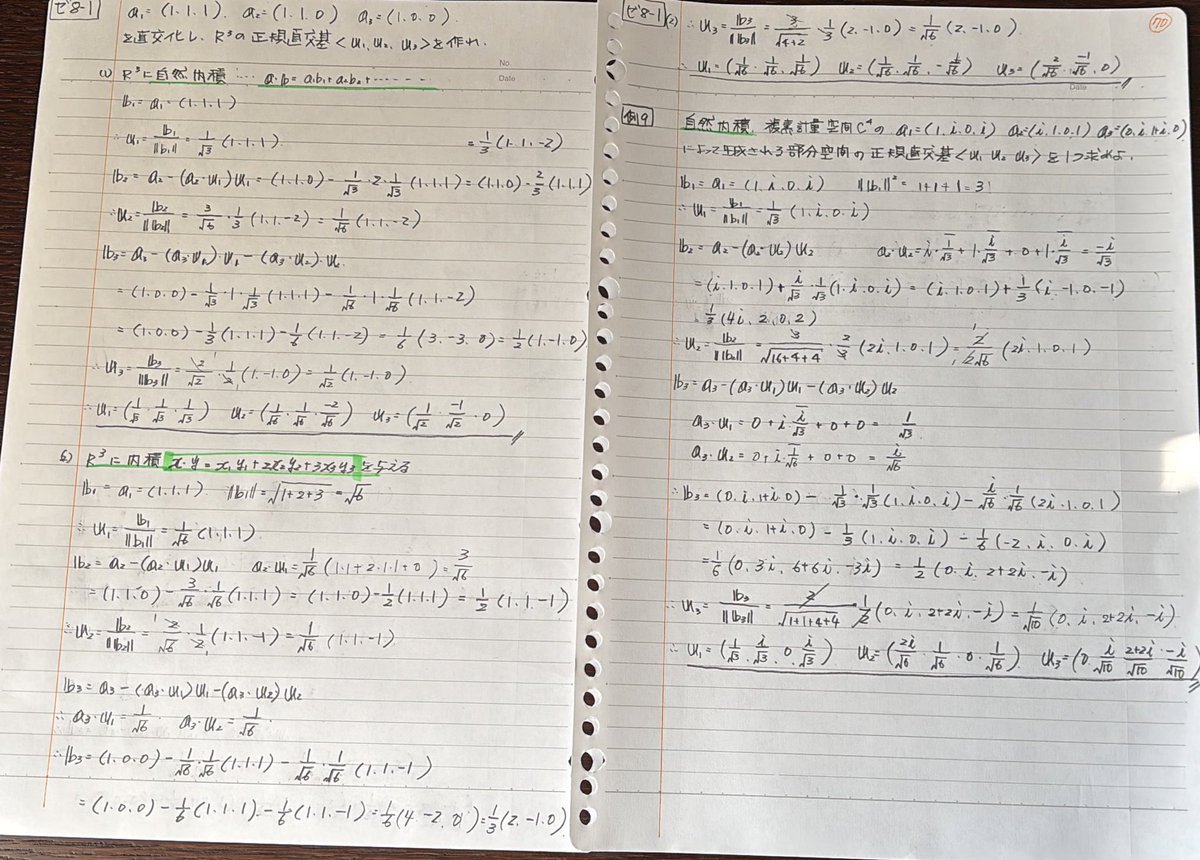 ゼ8-1 a₁=(1.1.1). a₂=(1.1.0) a₃=(1.0.0).
を直交化し、R³の正規直交基<u₁,u₂,u₃>を作れ.
No
Date
(1) R³に自然内積 … a・b=a₁b₁+a₂b₂+……
b₁=a₁=(1.1.1)
∴u₁=b₁/||b₁||=1/√3(1.1.1). =1/3(1.1.-2)
b₂=a₂-(a₂・u₁)u₁=(1.1.0)-1/√3・2・1/√3(1.1.1)=(1.1.0)-2/3(1.1.1)
∴u₂=b₂/||b₂||=3/√6・1/3(1.1.-2)=1/√6(1.1.-2)
=(1.0.0)-1/√3・1・1/√3(1.1.1)-1/√6・1・1/√6(1.1.-2)
=(1.0.0)-1/3(1.1.1)-1/6(1.1.-2)=1/6(3.-3.0)=1/2(1.-1.0)
∴u₃=b₃/||b₃||=2/√2・1/2(1.-1.0)=1/√2(1.-1.0)
∴u₁=(1/√3・1/√3・1/√3) u₂=(1/√6・1/√6・-2/√6) u₃=(1/√2・-1/√2・0)
R³に内積 x・y=x₁y₁+2x₂y₂+3x₃y₃を与える
b₁=a₁=(1.1.1) ||b₁||=√1+2+3=√6
∴u₁=b₁/||b₁||=1/√6(1.1.1).
b₂=a₂-(a₂・u₁)u₁ a₂・u₁=1/√6(1.1+2.1.1+0)=3/√6
=(1.1.0)-3/√6・1/√6(1.1.1)=(1.1.0)-1/2(1.1.1)=1/2(1.1.-1)
∴u₂=b₂/||b₂||=2/√6・1/2(1.1.-1)=1/√6(1.1.-1)
b₃=a₃-(a₃・u₁)u₁-(a₃・u₂)u₂
∴a₃・u₁=1/√6 a₃・u₂=1/√6.
∴b₃=(1.0.0)-1/√6・1/√6(1.1.1)-1/√6・1/√6(1.1.-1)
=(1.0.0)-1/6(1.1.1)-1/6(1.1.-1)=1/6(4.-2.0)=1/3(2.-1.0)
ゼ8-1(2) ∴u₃=b₃/||b₃||=3/√4+2・1/3(2.-1.0)=1/√6(2.-1.0). 70
∴u₁=(1/√6・1/√6・1/√6) u₂=(1/√6・1/√6・-1/√6) u₃=(2/√6・-1/√6.0)
Date
例9 自然内積、複素計量空間C⁴の a₁=(1.i.0.i) a₂=(i.1.0.1) a₃=(0.i.1+i.0)
によって生成される部分空間の正規直交基<u₁ u₂ u₃>を1つ求めよ.
b₁=a₁=(1.i.0.i) ||b₁||²=1+1+1=3
∴u₁=b₁/||b₁||=1/√3(1.i.0.i)
=(i.1.0.1)+i/√3・1/√3(1.i.0.i)=(i.1.0.1)+1/3(i.-1.0.-1)
1/3(4i.2.0.2)
∴u₂=b₂/||b₂||=3/√16+4+4・2/3(2i.1.0.1)=2/2√6(2i.1.0.1)
b₃=a₃-(a₃・u₁)u₁-(a₃・u₂)u₂
a₃・u₁=0+i・i̅/√3+0+0=1/√3.
a₃・u₂=0+i・1/√6+0+0=i/√6
∴b₃=(0.i.1+i.0)-1/√3・1/√3(1.i.0.i)-i/√6・1/√6(2i.1.0.1)
=(0.i.1+i.0)-1/3(1.i.0.i)-1/6(-2.i.0.i)
=1/6(0.3i.6+6i.-3i)=1/2(0.i.2+2i.-i)
∴u₃=b₃/||b₃||=2/√1+1+4+4・1/2(0.i.2+2i.-i)=1/√10(0.i.2+2i.-i)
∴u₁=(1/√3・i/√3.0.i/√3) u₂=(2i/√6・1/√6・0・1/√6) u₃=(0.i/√10 2+2i/√10・-i/√10)